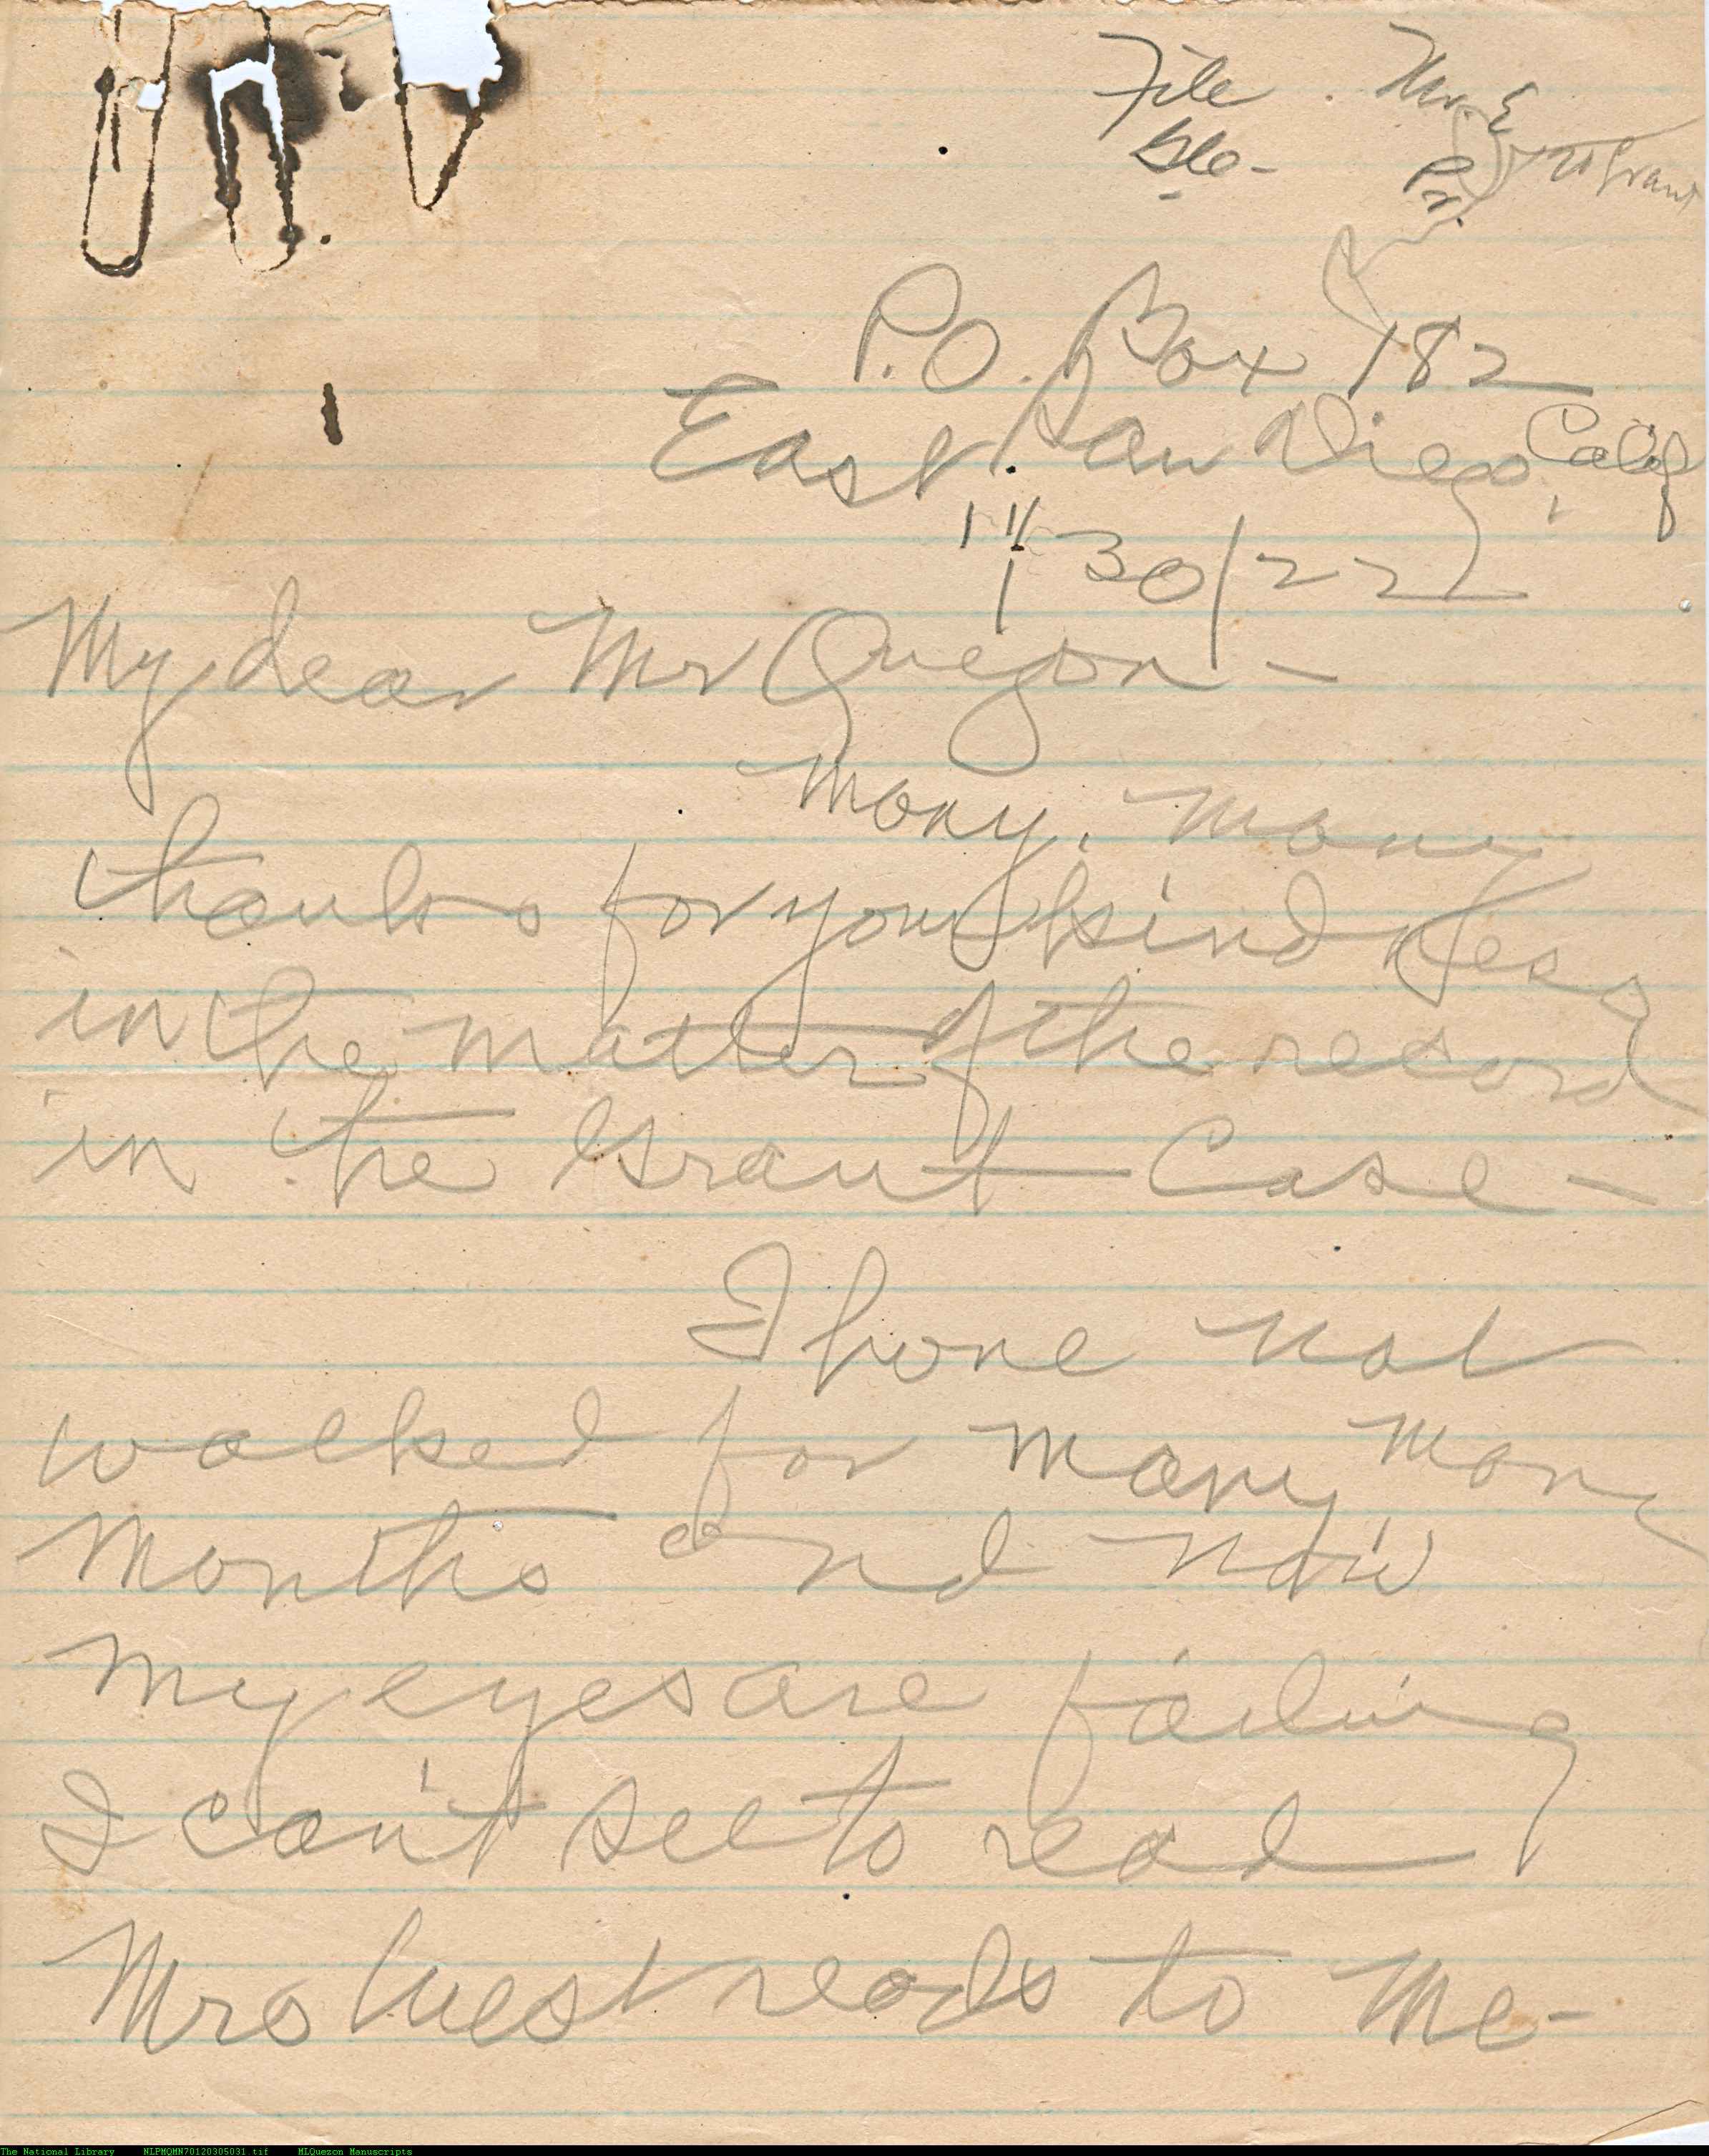 File . Mr. E
P.O. Box 182
East San Diego, Calif
11/30/22
My dear Mr Quezon -
Many, many
thanks for your kindness
in the matter of the record
in the Grant Case -
I have not
walked for many many
months and now
my eyes are failing
I can't see to read
Mrs West reads to me -
The National Library NLPMQMN70120305031.tif MLQuezon Manuscripts